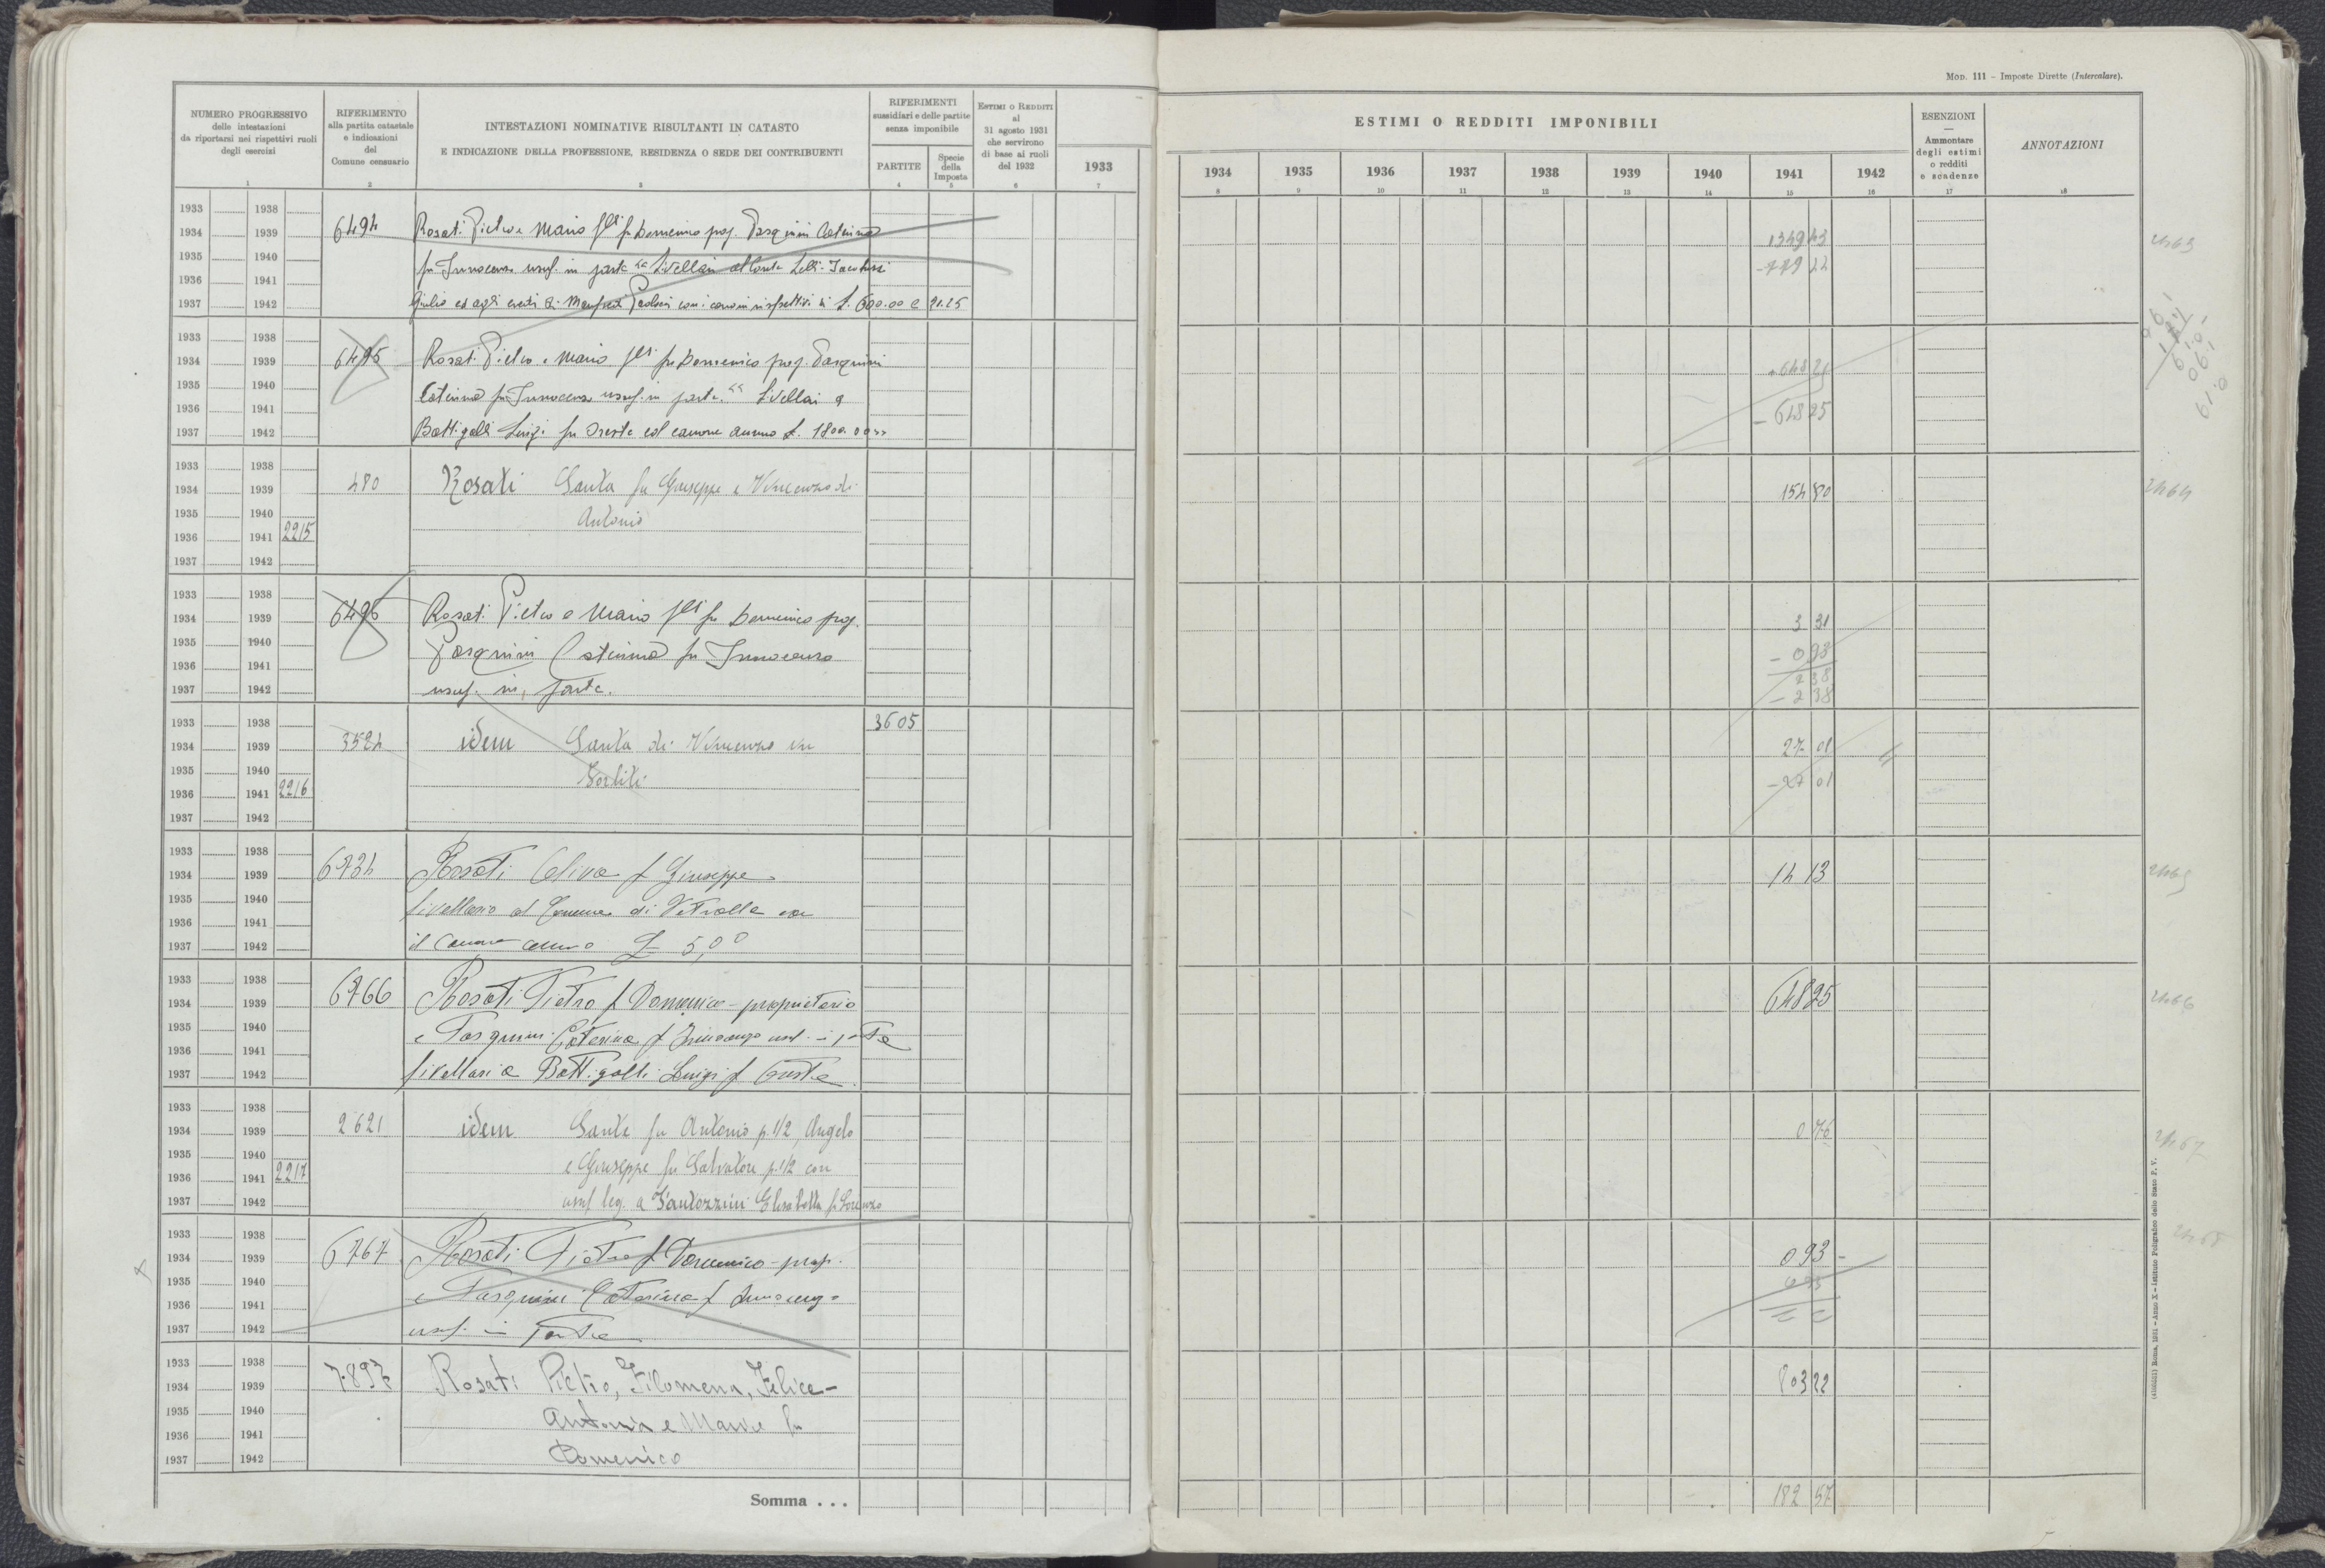 MOD. 111 – Imposte Dirette (Intercalare).
NUMERO PROGRESSIVO
delle intestazioni
da riportarsi nei rispettivi ruoli
degli esercizi
1
RIFERIMENTO
alla partita catastale
e indicazioni
del
Comune censuario
2
INTESTAZIONI NOMINATIVE RISULTANTI IN CATASTO
E INDICAZIONE DELLA PROFESSIONE, RESIDENZA O SEDE DEI CONTRIBUENTI
3
RIFERIMENTI
sussidiari e delle partite
senza imponibile
PARTITE
4
Specie
della
Imposta
5
ESTIMI O REDDITI
al
31 agosto 1931
che servirono
di base ai ruoli
del 1932
6
1933
7
ESTIMI O REDDITI IMPONIBILI
1934 1935 1936 1937 1938 1939 1940 1941 1942
8 9 10 11 12 13 14 15 16
ESENZIONI
—
Ammontare
degli estimi
o redditi
e scadenze
17
ANNOTAZIONI
18
1933 1938
1934 1939 6494 Rosati Pietro e Mario f.lli fu Domenico prop. Pasquini Caterina 1349 43 2463
1935 1940 fu Innocenzo usuf. in parte Livellari al Conte Lelli -779 22
1936 1941
1937 1942 Giulio ed agli eredi di L. 600.00 e 21.25
1933 1938
1934 1939 6495 Rosati Pietro e Mario f.lli fu Domenico prop. Pasquini 648 25
1935 1940 Caterina fu Innocenzo usuf. in parte. Livellari a
1936 1941 - 648 25
1937 1942 Battigalli Luigi fu Oreste col canone annuo L. 1800.00
1933 1938
1934 1939 480 Rosati Santa fu Giuseppe e Vincenzo di 154 80 2464
1935 1940 Antonio
1936 1941 2215
1937 1942
1933 1938
1934 1939 6496 Rosati Pietro e Mario f.lli fu Domenico prop. 3 31
1935 1940 Pasquini Caterina fu Innocenzo - 0 93
1936 1941 2 38
1937 1942 usuf. in parte. - 2 38
1933 1938 3605
1934 1939 3524 idem Santa di Vincenzo in 27 01
1935 1940 -27 01
1936 1941 2216
1937 1942
1933 1938
1934 1939 6734 Rosati Oliva f Giuseppe 14 13 2465
1935 1940 livellario al Comune di Vetralla con
1936 1941
1937 1942 il canone annuo £ 5,00
1933 1938
1934 1939 6766 Rosati Pietro f Domenico - proprietario 648 25 2466
1935 1940 e Pasquini Caterina f Innocenzo usuf. in parte
1936 1941
1937 1942 livellari a Battigalli Luigi f Oreste
1933 1938
1934 1939 2621 idem Santa fu Antonio p. 1/2 Angelo 0 76 2467
1935 1940 e Giuseppe fu Salvatore p. 1/2 con
1936 1941 2217
1937 1942 usuf leg. a Fantozzini Elisabetta fu Lorenzo
1933 1938
1934 1939 6767 Rosati Pietro f Domenico - prop. 0 93 -
1935 1940 e Pasquini Caterina f Innocenzo
1936 1941
1937 1942 usuf. in parte
1933 1938
1934 1939 7897 Rosati Pietro, Filomena, Felice- 803 22
1935 1940 Antonia e Mario fu
1936 1941
1937 1942 Domenico
Somma . . . 182 57
Roma, 1931 – Anno X – Istituto Poligrafico dello Stato P. V.